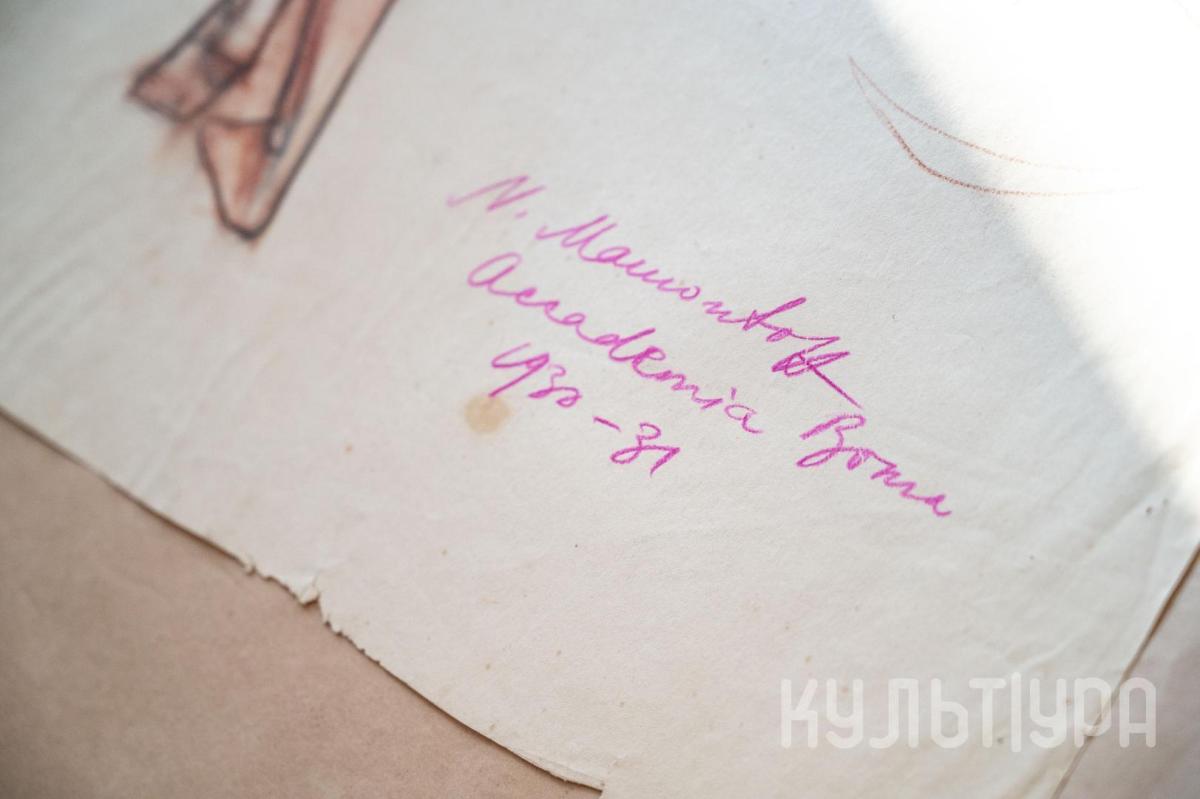 N. Mamontoff
Accademia Roma
1930-31
КУЛЬТ|УРА